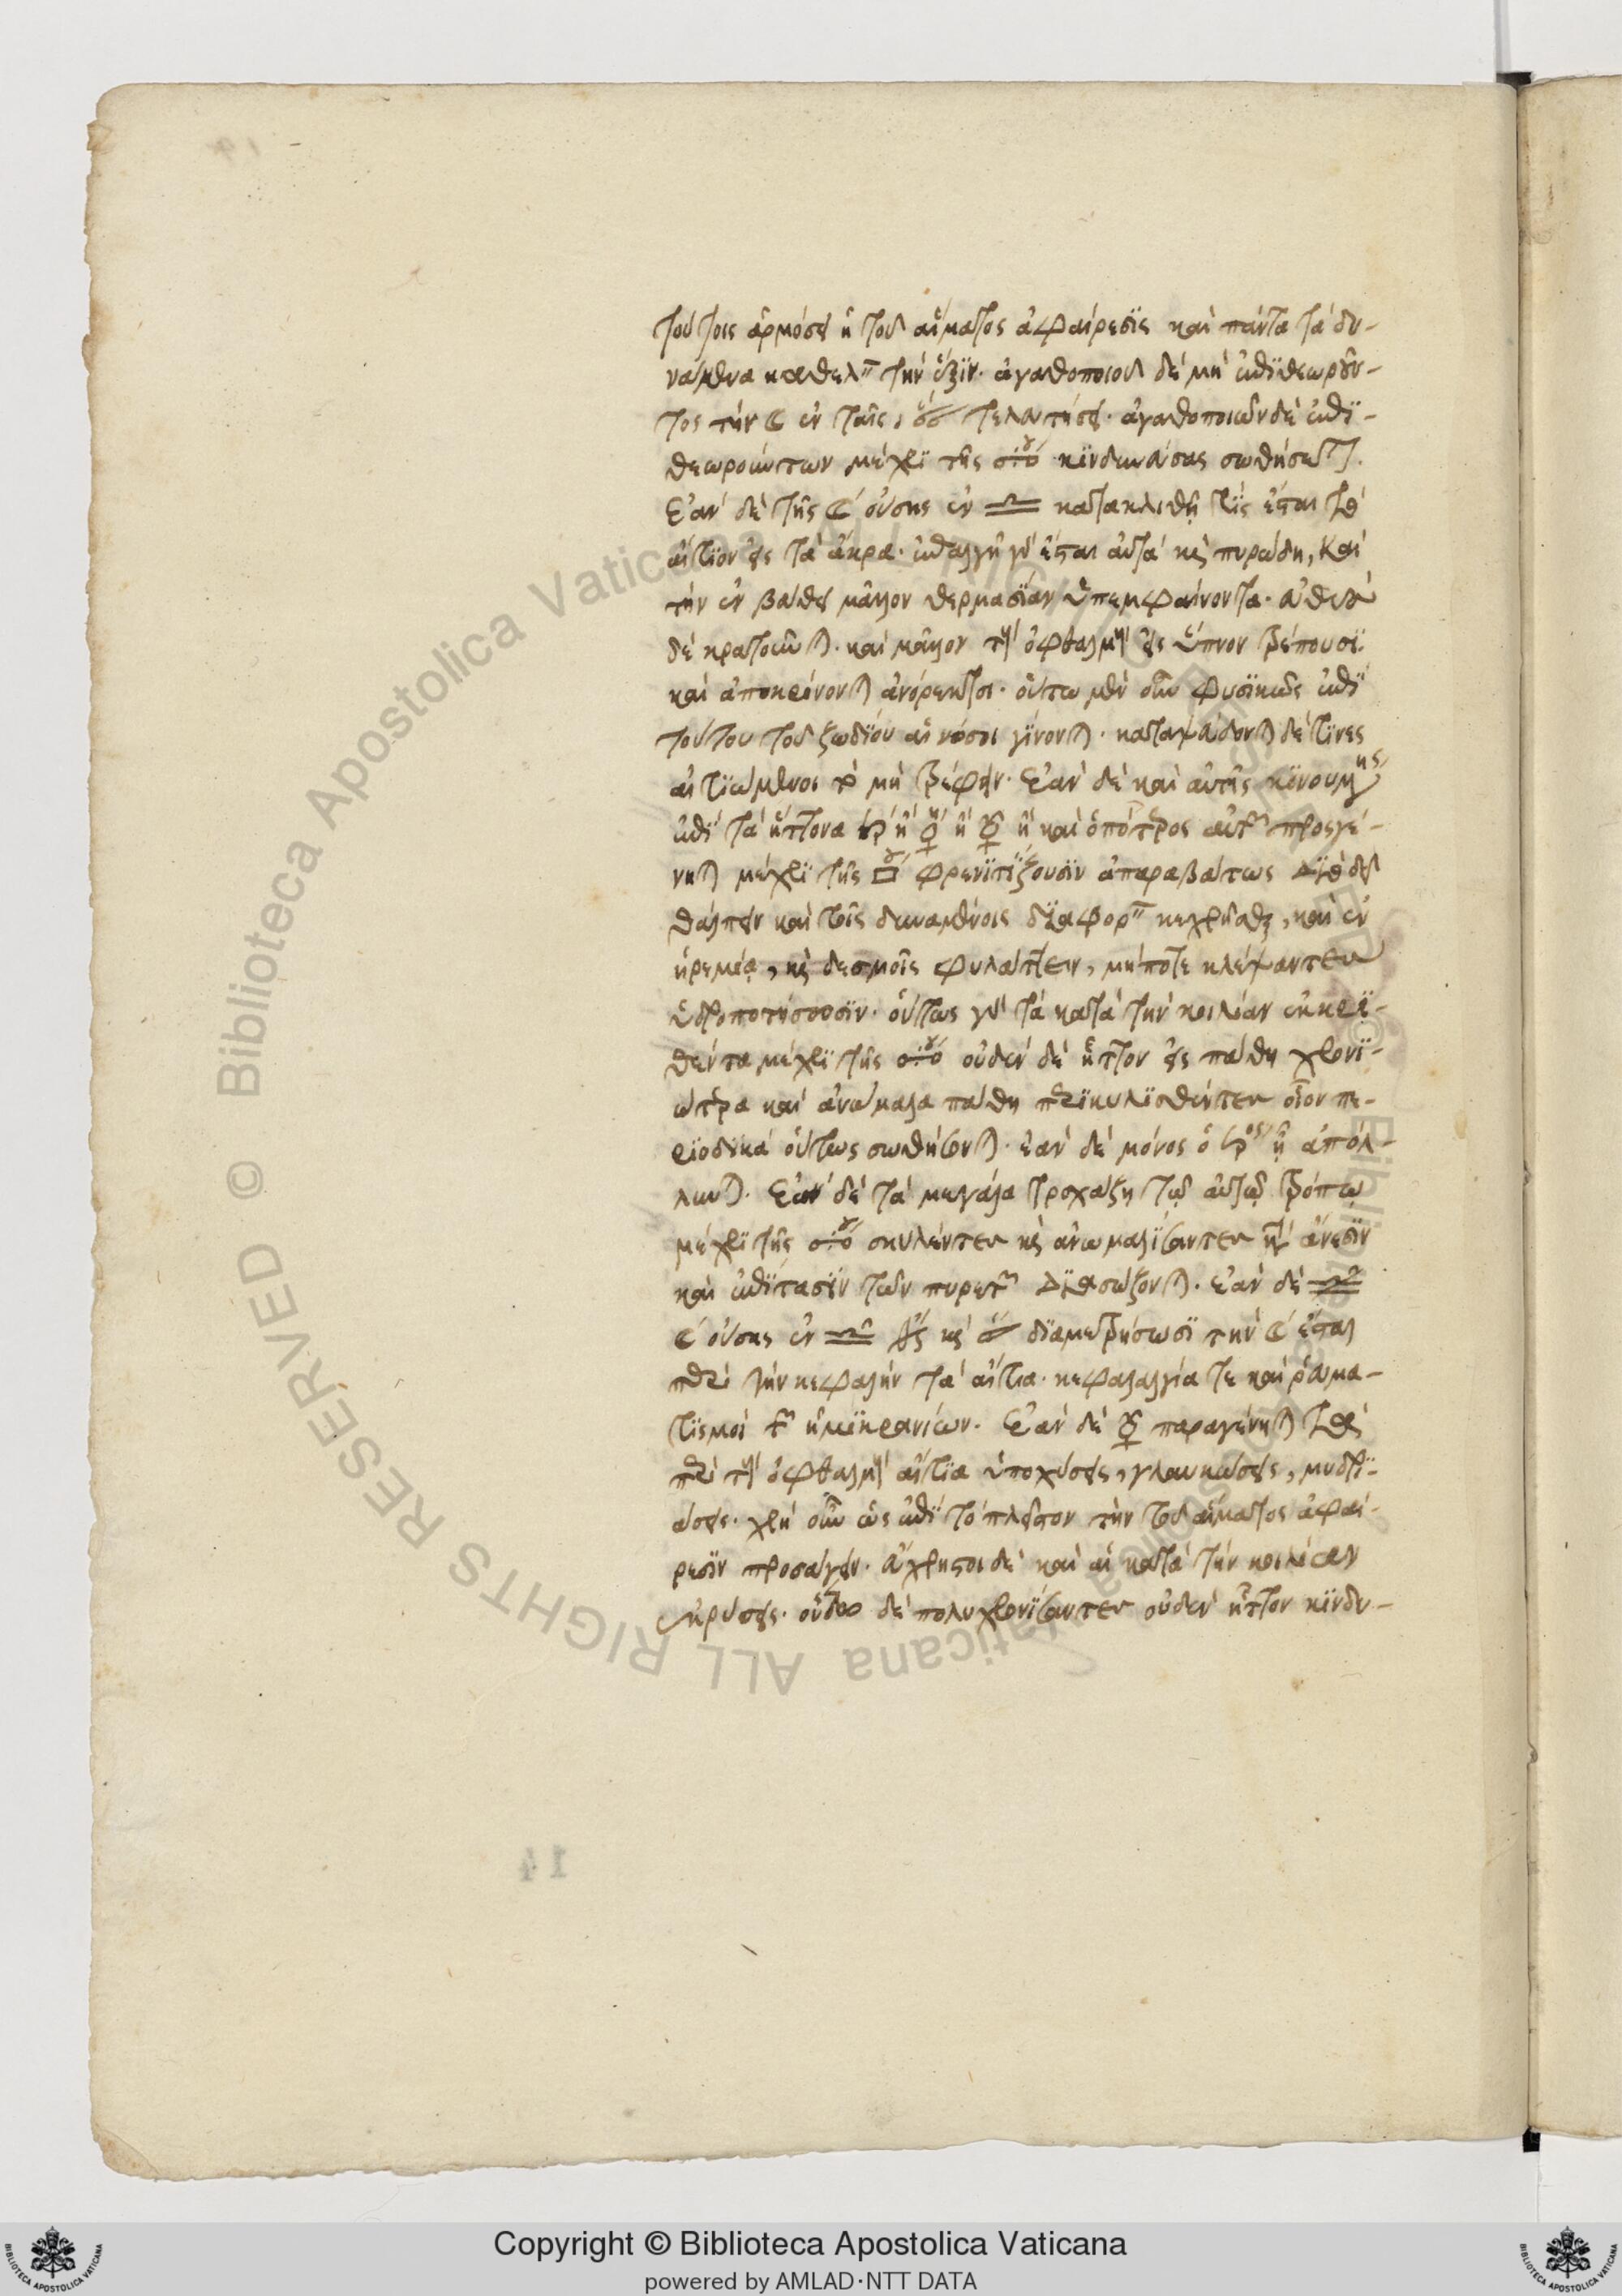 τούτοις ἁρμόσει ἡ τοῦ αἵματος ἀφαίρεσϊς καὶ πάντα τὰ δυ-
νάμενα καθελεῖν τὴν ἕξϊν. ἀγαθοποιοῦ δὲ μὴ ἐπϊθεωροῦν-
τος τὴν ☾ ἐν ταῖς τελευτήσει. ἀγαθοποιῶν δὲ ἐπϊ-
θεωρούντων μέχρϊ τῆς κϊνδυνεύσας σωθήσεται.
Ἐὰν δὲ τῆς ☾ οὔσης ἐν ♎ κατακλιθῇ τϊς ἔσται τὸ
αἴτϊον εἰς τὰ ἄκρα. ἐπαλγῆ γὰρ ἔσται αὐτὰ καὶ πυρώδη, καὶ
τὴν ἐν βάθει μᾶλλον θερμασϊαν ὑπεμφαίνοντα.
δὲ κρατοῦνται. καὶ μᾶλλον τῶν ὀφθαλμῶν εἰς ὕπνον τρέπουσϊ.
καὶ ἀποκρίνονται ἀνόρεκτοι. οὕτω μὲν οὖν φυσϊκῶς ἐπϊ
τούτου τοῦ ζωδϊου αἱ νόσοι γϊνονται. καταψεύδονται δέ τϊνες
αἰτϊώμενοι τὸ μὴ τρέφειν. Ἐὰν δὲ καὶ αὐτῆς κϊνουμένης
ἐπϊ τὰ ἥττονα ἢ ♀ ἢ ☿ ἢ καὶ ὁπότερος αὐτῶν προσγέ-
νηται μέχρϊ τῆς □ γ φρενϊτϊζουσϊν ἀπαραβάτως δϊὸ δεῖ
θάλπειν καὶ τοῖς δυναμένοις δϊαφορεῖν κεχρῆσθαι, καὶ ἐν
ἠρεμίᾳ, καὶ δεσμοῖς φυλάττειν, μήποτε κλέψαντες
ὑδροποτήσουσϊν. οὕτως γὰρ τὰ κατὰ τὴν κοιλίαν ἐκκρϊ-
θέντα μέχρϊ τῆς οὐδὲν δὲ ἧττον εἰς πάθη χρονϊ-
ώτερα καὶ ἀνώμαλα πάθη περϊκυλϊσθέντες οἷον πε-
ρϊοδϊκὰ οὕτως σωθήσονται. ἐὰν δὲ μόνος ὁ ᾖ ἀπόλ-
λυται. Ἐὰν δὲ τὰ μεγάλα τροχάζῃ τῷ αὐτῷ τρόπῳ
μέχρϊ τῆς σκυλέντες καὶ ἀνωμαλϊσαντες κατ' ἄνεσϊν
καὶ ἐπϊτασϊν τῶν πυρετῶν δϊασώζονται. Ἐὰν δὲ ♎
☾ οὔσης ἐν ♎ καὶ δϊαμετρήσωσϊ τὴν ☾ ἔσται
περὶ τὴν κεφαλὴν τὰ αἴτια. κεφαλαλγία τε καὶ ῥευμα-
τϊσμοὶ τῶν ἡμϊκρανίων. Ἐὰν δὲ ☿ παραγένηται τὰ
περὶ τῶν ὀφθαλμῶν αἴτϊα ὑποχύσεις, γλαυκώσεις, μυδρϊ-
άσεις. χρὴ οὖν ὡς ἐπϊ τὸ πλεῖστον τὴν τοῦ αἵματος ἀφαί-
ρεσϊν προσάγειν. ἄχρηστοι δὲ καὶ αἱ κατὰ τὴν κοιλίαν
ἐκκρίσεις. οὗτοι δὲ πολυχρονϊσαντες οὐδὲν ἧττον κϊνδυ-
14
© Biblioteca Apostolica Vaticana ALL RIGHTS RESERVED
Copyright © Biblioteca Apostolica Vaticana
powered by AMLAD·NTT DATA